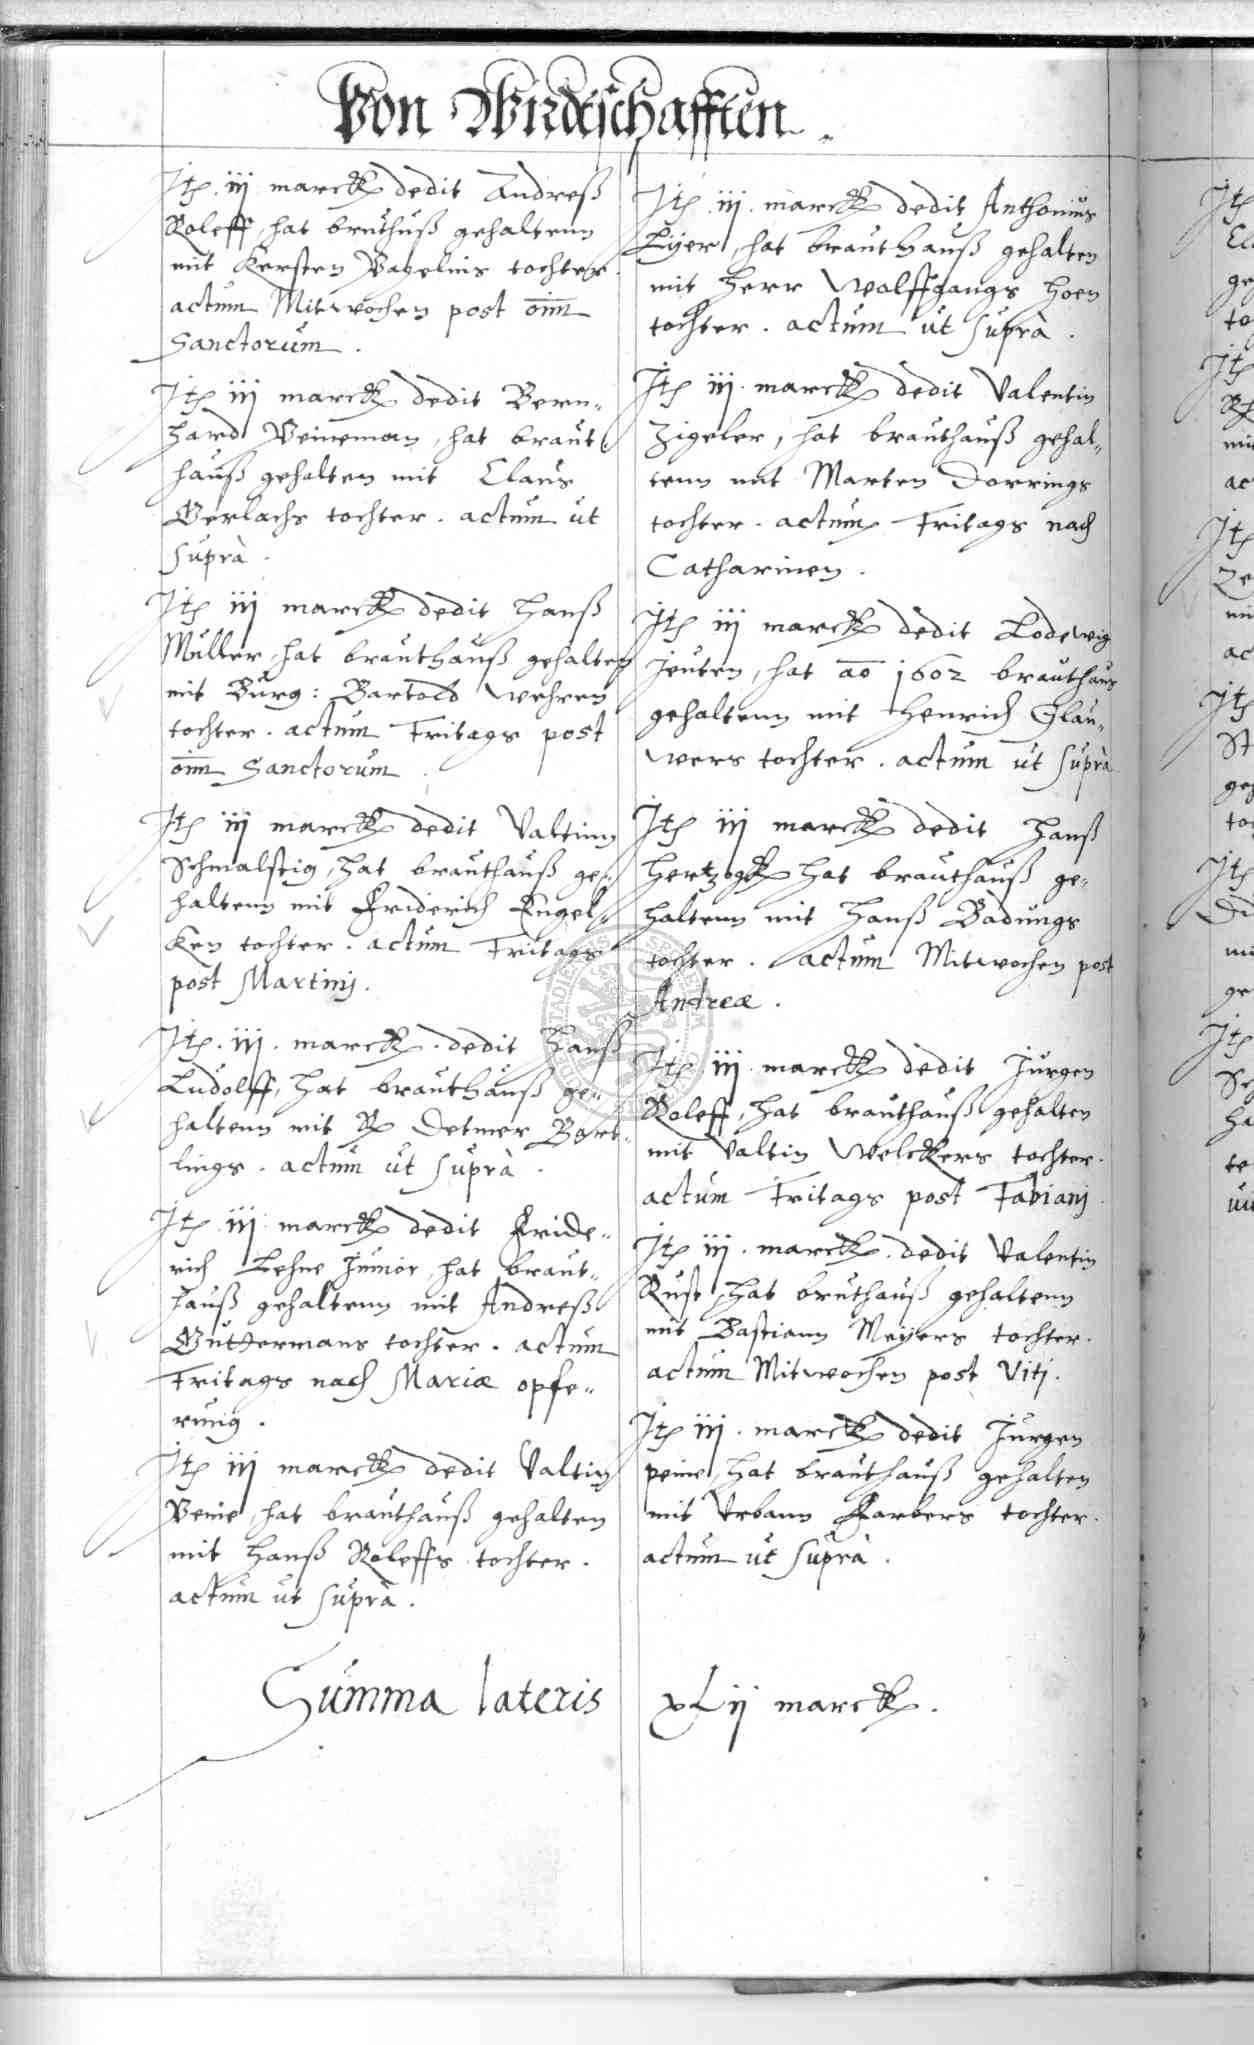 Von Wirdtschafften.
Itē. iij marck dedit Andreß
Roleff, hat bruthuß gehaltenn
mit Kersten Vatzelnis tochter.
actum Mitwochen post oīm
Sanctorum.
Itē iij marck dedit Bern-
hard Veineman, hat braut
hauß gehalten mit Claus
Gerlachs tochter. actum ut
suprà.
Itē iij marck dedit Hanß
Müller, hat brauthauß gehalten
mit Burg: Bartold Wehren
tochter. actum Fritags post
oīm Sanctorum.
Itē iij marck dedit Valtinn
Schmalstig, hat brauthauß ge-
haltenn mit Friderich Engel-
ken tochter. actum Fritags
post Martinj.
Itē. iij. marck. dedit Hanß
Ludolff, hat brauthauß ge-
haltenn mit Detmer Bart-
lings. actum ut suprà.
Itē. iij marck dedit Fride-
rich Lehne Junior, hat braut-
hauß gehaltenn mit Andreß
Guttermans tochter. actum
Fritags nach Mariæ opfe-
rung.
Itē iij marck dedit Valtin
Peine, hat brauthauß gehalten
mit Hanß Roleffs tochter.
actum ut suprà.
Itē. iij. marck dedit Anthonius
Lijer, hat brauthauß gehalten
mit Herr Wolffgangs Hoen
tochter. actum ut suprà.
Itē iij. marck dedit Valentin
Zigeler, hat brauthauß gehal-
tenn mit Marten Dorrings
tochter. actum Fritags nach
Catharinen.
Itē iij marck dedit Lodewig
Jeuten, hat aō 1602 brauthaus
gehaltenn mit Henrich Glau-
wers tochter. actum ut suprà
Itē iij marck dedit Hanß
Hertzogk hat brauthauß ge-
haltenn mit Hanß Badungs
tochter. actum Mitwochen post
Andreæ.
Itē iij. marck dedit Jurgen
Roleff, hat brauthauß gehalten
mit Valtin Welckers tochter.
actum Fritags post Fabianj
Itē iij. marck. dedit Valentin
Rust, hat bruthauß gehaltenn
mit Bastiann Meijers tochter.
actum Mitwochen post Vitj.
Itē iij. marck dedit Jurgen
peine, hat brauthauß gehalten
mit Urbann Farbers tochter.
actum ut suprà.
Summa lateris xLij marck.